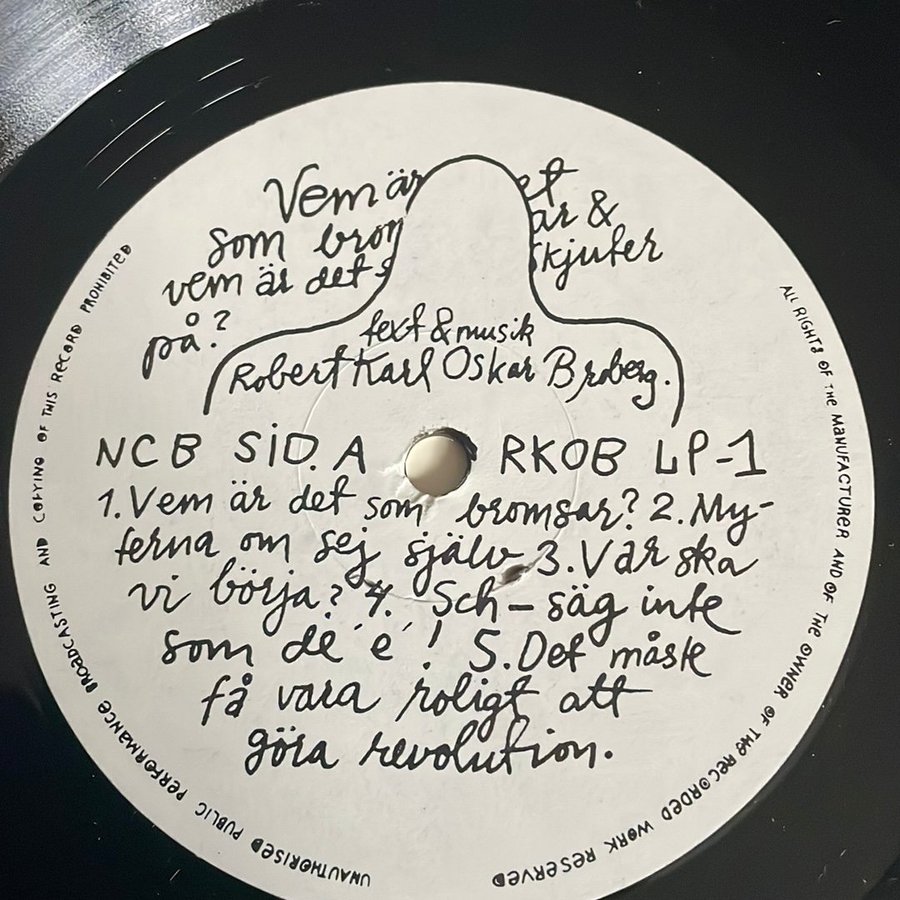 Vem är et
som brom ar &
vem är det s skjuter
på?
text & musik
Robert Karl Oskar Broberg.
NCB SiD. A RKOB LP-1
1. Vem är det som bromsar? 2. My-
terna om sej själv 3. Var ska
vi börja? 4. Sch – säg inte
som de´ e´! 5. Det måste
få vara roligt att
göra revolution.
ALL RIGHTS OF THE MANUFACTURER AND OF THE OWNER OF THE RECORDED WORK RESERVED
UNAUTHORISED PUBLIC PERFORMANCE BROADCASTING AND COPYING OF THIS RECORD PROHIBITED